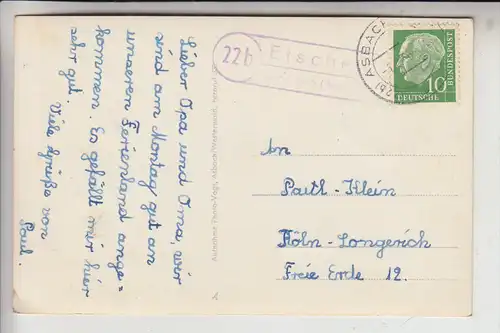 Lieber Opa und Oma, wir
sind am Montag gut an
unserem Ferienland ange=
kommen. Es gefällt mir hier
sehr gut.
Viele Grüße von
Paul.
22b
ASBACH
10
DEUTSCHE
BUNDESPOST
An
Klein
Köln-Longerich
Freie Erde 12.